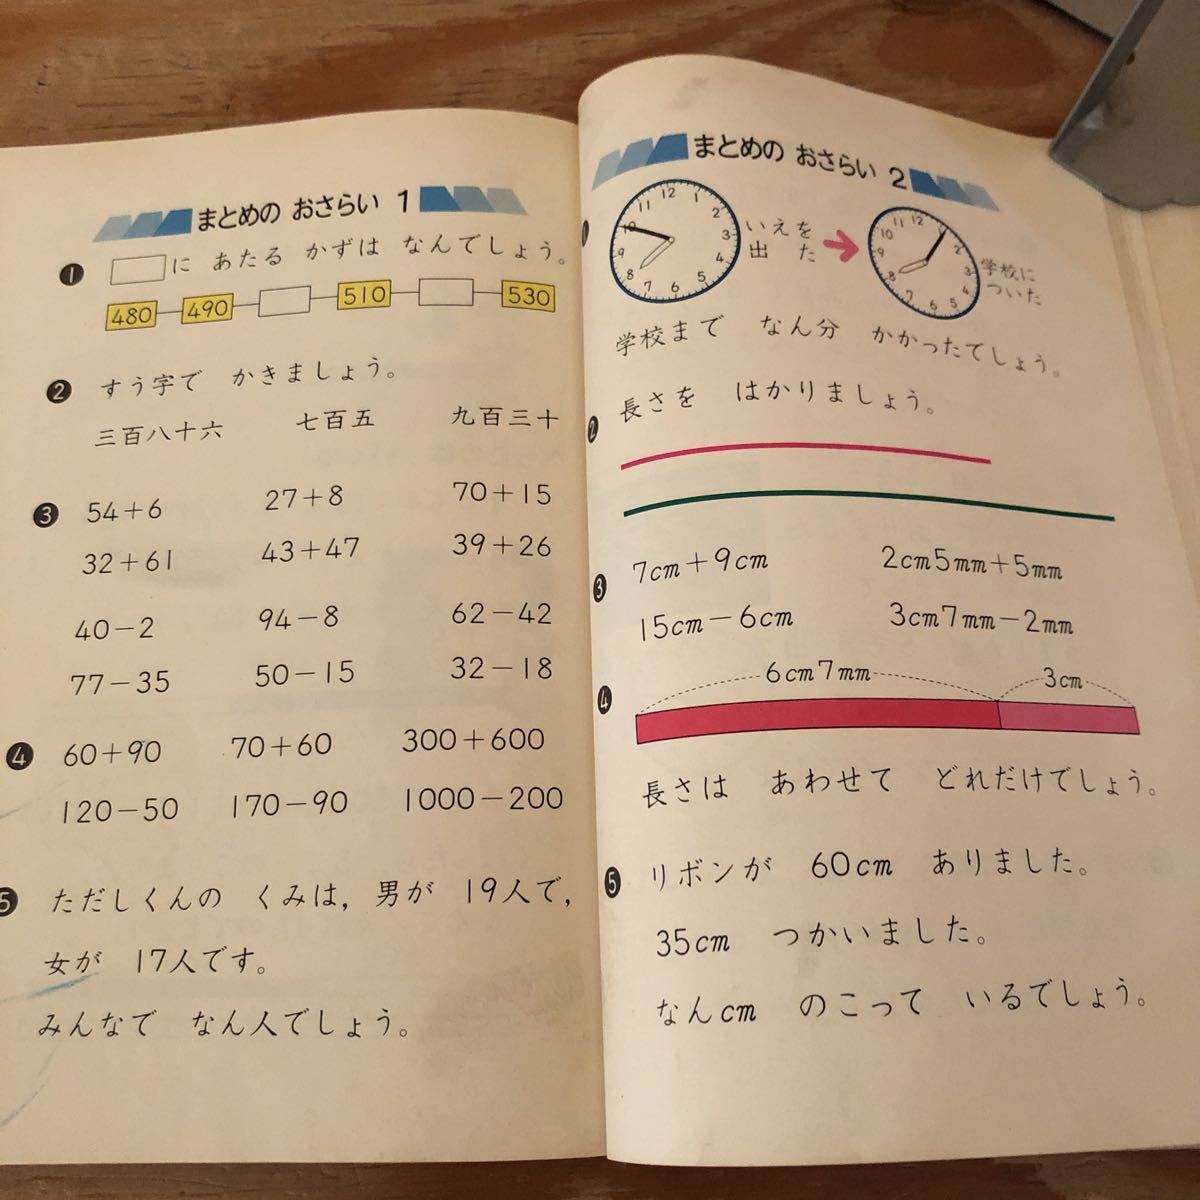 まとめの おさらい 1
❶ □に あたる かずは なんでしょう。
480 490 □ 510 □ 530
❷ すう字で かきましょう。
三百八十六 七百五 九百三十
❸ 54+6 27+8 70+15
32+61 43+47 39+26
40-2 94-8 62-42
77-35 50-15 32-18
❹ 60+90 70+60 300+600
120-50 170-90 1000-200
❺ ただしくんの くみは，男が 19人で，
女が 17人です。
みんなで なん人でしょう。
まとめの おさらい 2
❶
12 1 2 3 4 5 6 7 8 9 10 11
いえを
出た
12 1 2 3 4 5 6 7 8 9 10 11
学校に
ついた
学校まで なん分 かかったでしょう。
❷ 長さを はかりましょう。
❸ 7cm+9cm 2cm5mm+5mm
15cm-6cm 3cm7mm-2mm
❹ 6cm7mm 3cm
長さは あわせて どれだけでしょう。
❺ リボンが 60cm ありました。
35cm つかいました。
なんcm のこって いるでしょう。